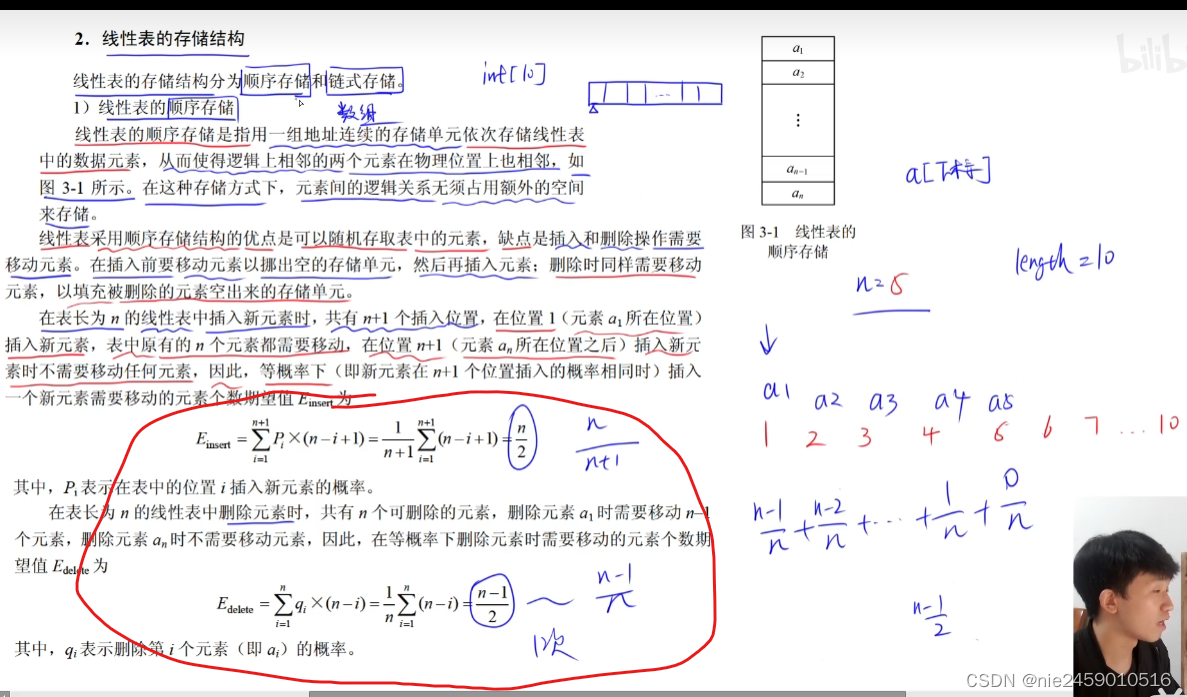 2．线性表的存储结构
线性表的存储结构分为顺序存储和链式存储。
int[10]
1）线性表的顺序存储
数组
线性表的顺序存储是指用一组地址连续的存储单元依次存储线性表
中的数据元素，从而使得逻辑上相邻的两个元素在物理位置上也相邻，如
图 3-1 所示。在这种存储方式下，元素间的逻辑关系无须占用额外的空间
来存储。
a₁
a₂
⋮
aₙ₋₁
aₙ
图 3-1 线性表的
顺序存储
a[下标]
bilib
线性表采用顺序存储结构的优点是可以随机存取表中的元素，缺点是插入和删除操作需要
移动元素。在插入前要移动元素以挪出空的存储单元，然后再插入元素；删除时同样需要移动
元素，以填充被删除的元素空出来的存储单元。
length=10
n=5
在表长为 n 的线性表中插入新元素时，共有 n+1 个插入位置，在位置 1（元素 a₁ 所在位置）
插入新元素，表中原有的 n 个元素都需要移动，在位置 n+1（元素 aₙ 所在位置之后）插入新元
素时不需要移动任何元素，因此，等概率下（即新元素在 n+1 个位置插入的概率相同时）插入
一个新元素需要移动的元素个数期望值 E_insert 为
E_insert = ∑_{i=1}^{n+1} P_i×(n−i+1) = 1/(n+1) ∑_{i=1}^{n+1} (n−i+1) = n/2
n/(n+1)
a1 a2 a3 a4 a5
1 2 3 4 5 6 7 … 10
其中，P₁ 表示在表中的位置 i 插入新元素的概率。
在表长为 n 的线性表中删除元素时，共有 n 个可删除的元素，删除元素 a₁ 时需要移动 n–1
个元素，删除元素 aₙ 时不需要移动元素，因此，在等概率下删除元素时需要移动的元素个数期
望值 E_delete 为
(n-1)/n + (n-2)/n + … + 1/n + 0/n
E_delete = ∑_{i=1}^{n} q_i×(n−i) = 1/n ∑_{i=1}^{n} (n−i) = (n−1)/2
~ (n-1)/n
1次
(n-1)/2
其中，q_i 表示删除第 i 个元素（即 a_i）的概率。
CSDN @nie2459010516